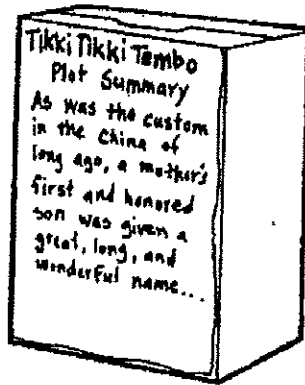 Tikki Tikki Tembo
Plot Summary
As was the custom
in the China of
long ago, a mother's
first and honored
son was given a
great, long, and
wonderful name...